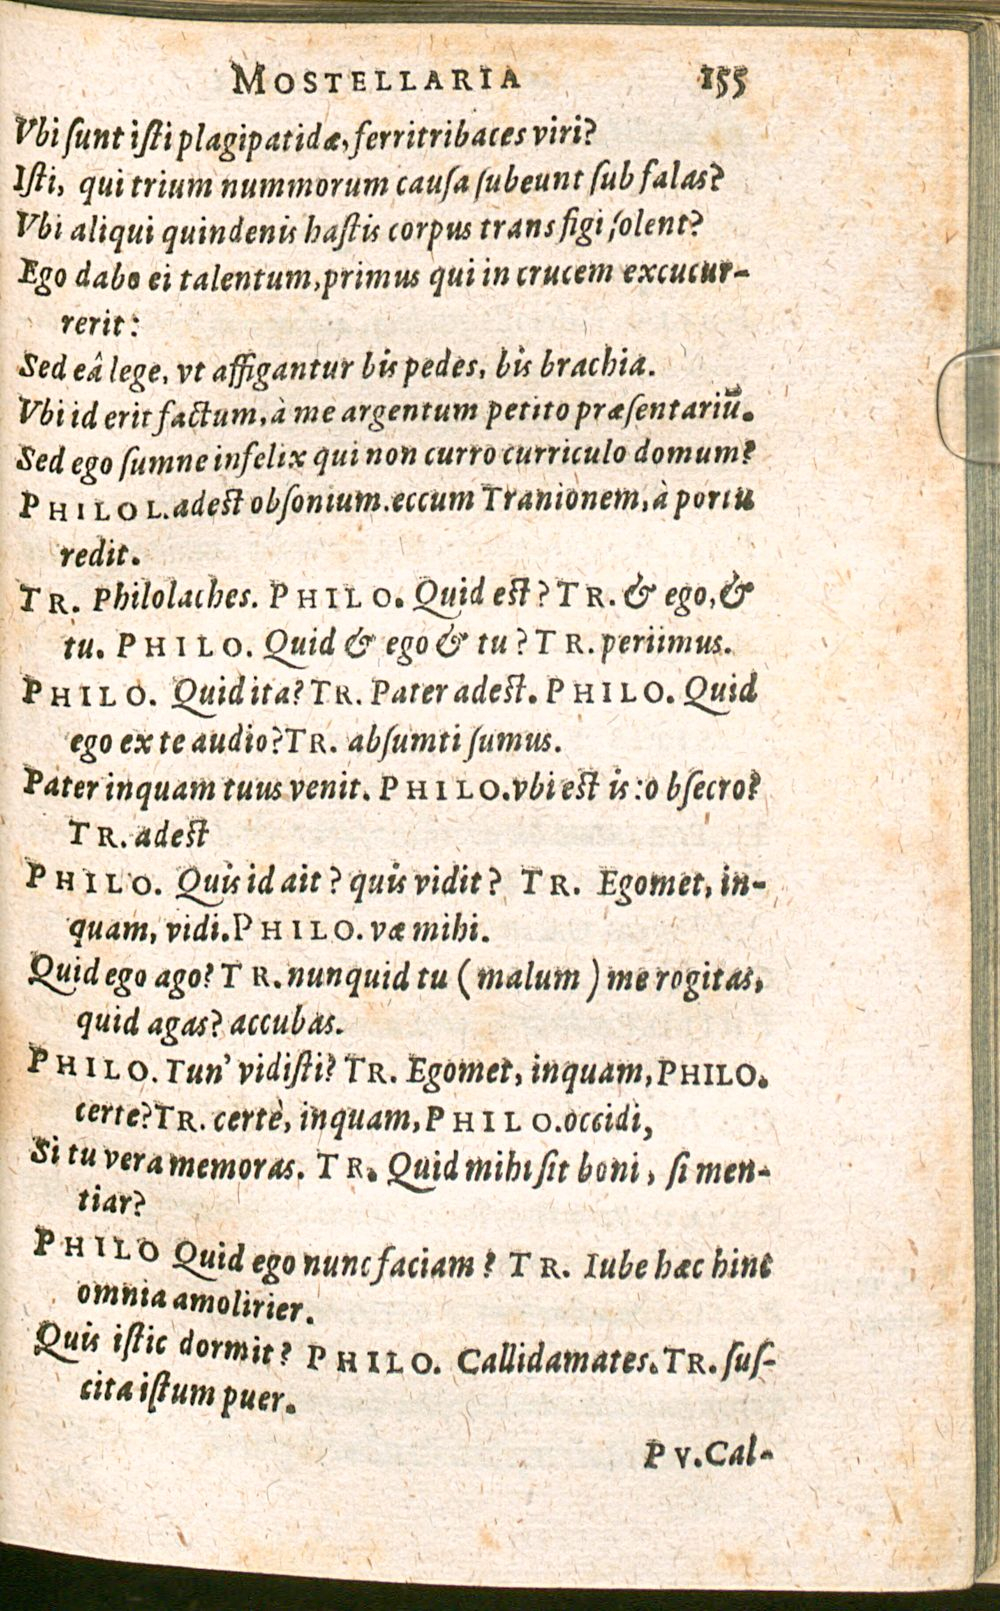 MOSTELLARIA 155
Vbi ſunt iſti plagipatidæ, ferritribaces viri?
Iſti, qui trium nummorum cauſa ſubeunt ſub falas?
Vbi aliqui quindenis haſtis corpus trans figi ſolent?
Ego dabo ei talentum, primus qui in crucem excucur-
rerit:
Sed eâ lege, vt affigantur bis pedes, bis brachia.
Vbi id erit factum, à me argentum petito præſentariū.
Sed ego ſumne infelix qui non curro curriculo domum?
PHILOL. adeſt obſonium. eccum Tranionem, à portu
redit.
TR. Philolaches. PHILO. Quid eſt? TR. & ego, &
tu. PHILO. Quid & ego & tu? TR. periimus.
PHILO. Quid ita? TR. Pater adeſt. PHILO. Quid
ego ex te audio? TR. abſumti ſumus.
Pater inquam tuus venit. PHILO. vbi eſt is: o bſecro?
TR. adeſt
PHILO. Quis id ait? quis vidit? TR. Egomet, in-
quam, vidi. PHILO. væ mihi.
Quid ego ago? TR. nunquid tu (malum) me rogitas,
quid agas? accubas.
PHILO. Tun' vidiſti? TR. Egomet, inquam, PHILO.
certe? TR. certè, inquam, PHILO. occidi,
Si tu vera memoras. TR. Quid mihi ſit boni, ſi men-
tiar?
PHILO Quid ego nunc faciam? TR. Iube hæc hinc
omnia amolirier.
Quis iſtic dormit? PHILO. Callidamates. TR. ſuſ-
cita iſtum puer.
P v. Cal-